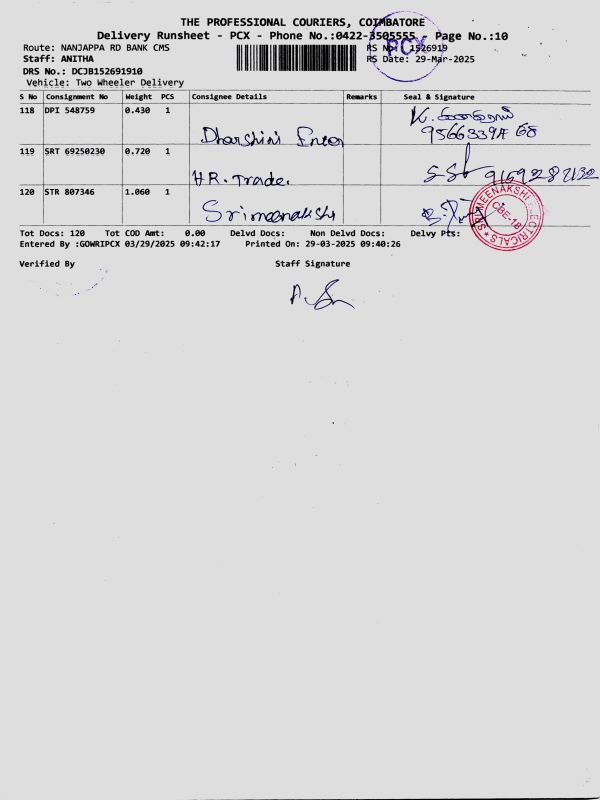 THE PROFESSIONAL COURIERS, COIMBATORE
Delivery Runsheet - PCX - Phone No.:0422-3505555 - Page No.:10
Route: NANJAPPA RD BANK CMS
RS No: 1526919
PCX
Staff: ANITHA
RS Date: 29-Mar-2025
DRS No.: DCJB152691910
Vehicle: Two Wheeler Delivery
S No Consignment No Weight PCS Consignee Details Remarks Seal & Signature
118 DPI 548759 0.430 1
Dharshini
119 SRT 69250230 0.720 1
HR. Trade.
120 STR 807346 1.060 1
Srimeenakshi
SRI MEENAKSHI ELECTRICALS
CBE-18
Tot Docs: 120 Tot COD Amt: 0.00 Delvd Docs: Non Delvd Docs: Delvy Pts:
Entered By :GOWRIPCX 03/29/2025 09:42:17 Printed On: 29-03-2025 09:40:26
Verified By Staff Signature